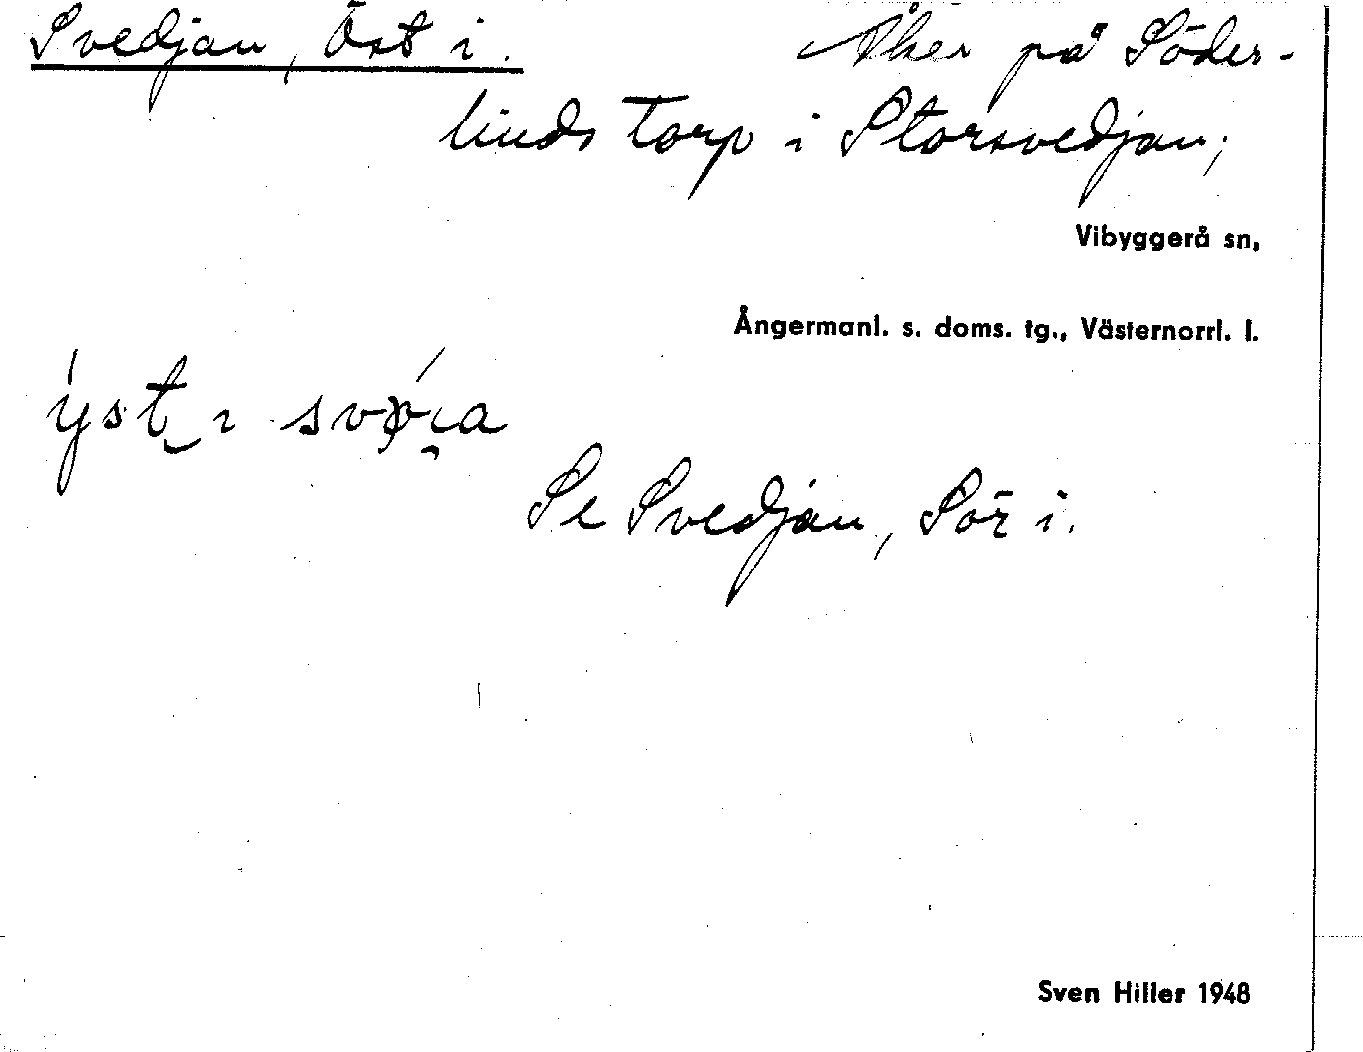 Svedjan, Öst i. Åker på Söder-
linds torp i Storsvedjan;
Vibyggerå sn,
Ångermanl. s. doms. tg., Västernorrl. l.
Se Svedjan, Sör i.
Sven Hiller 1948